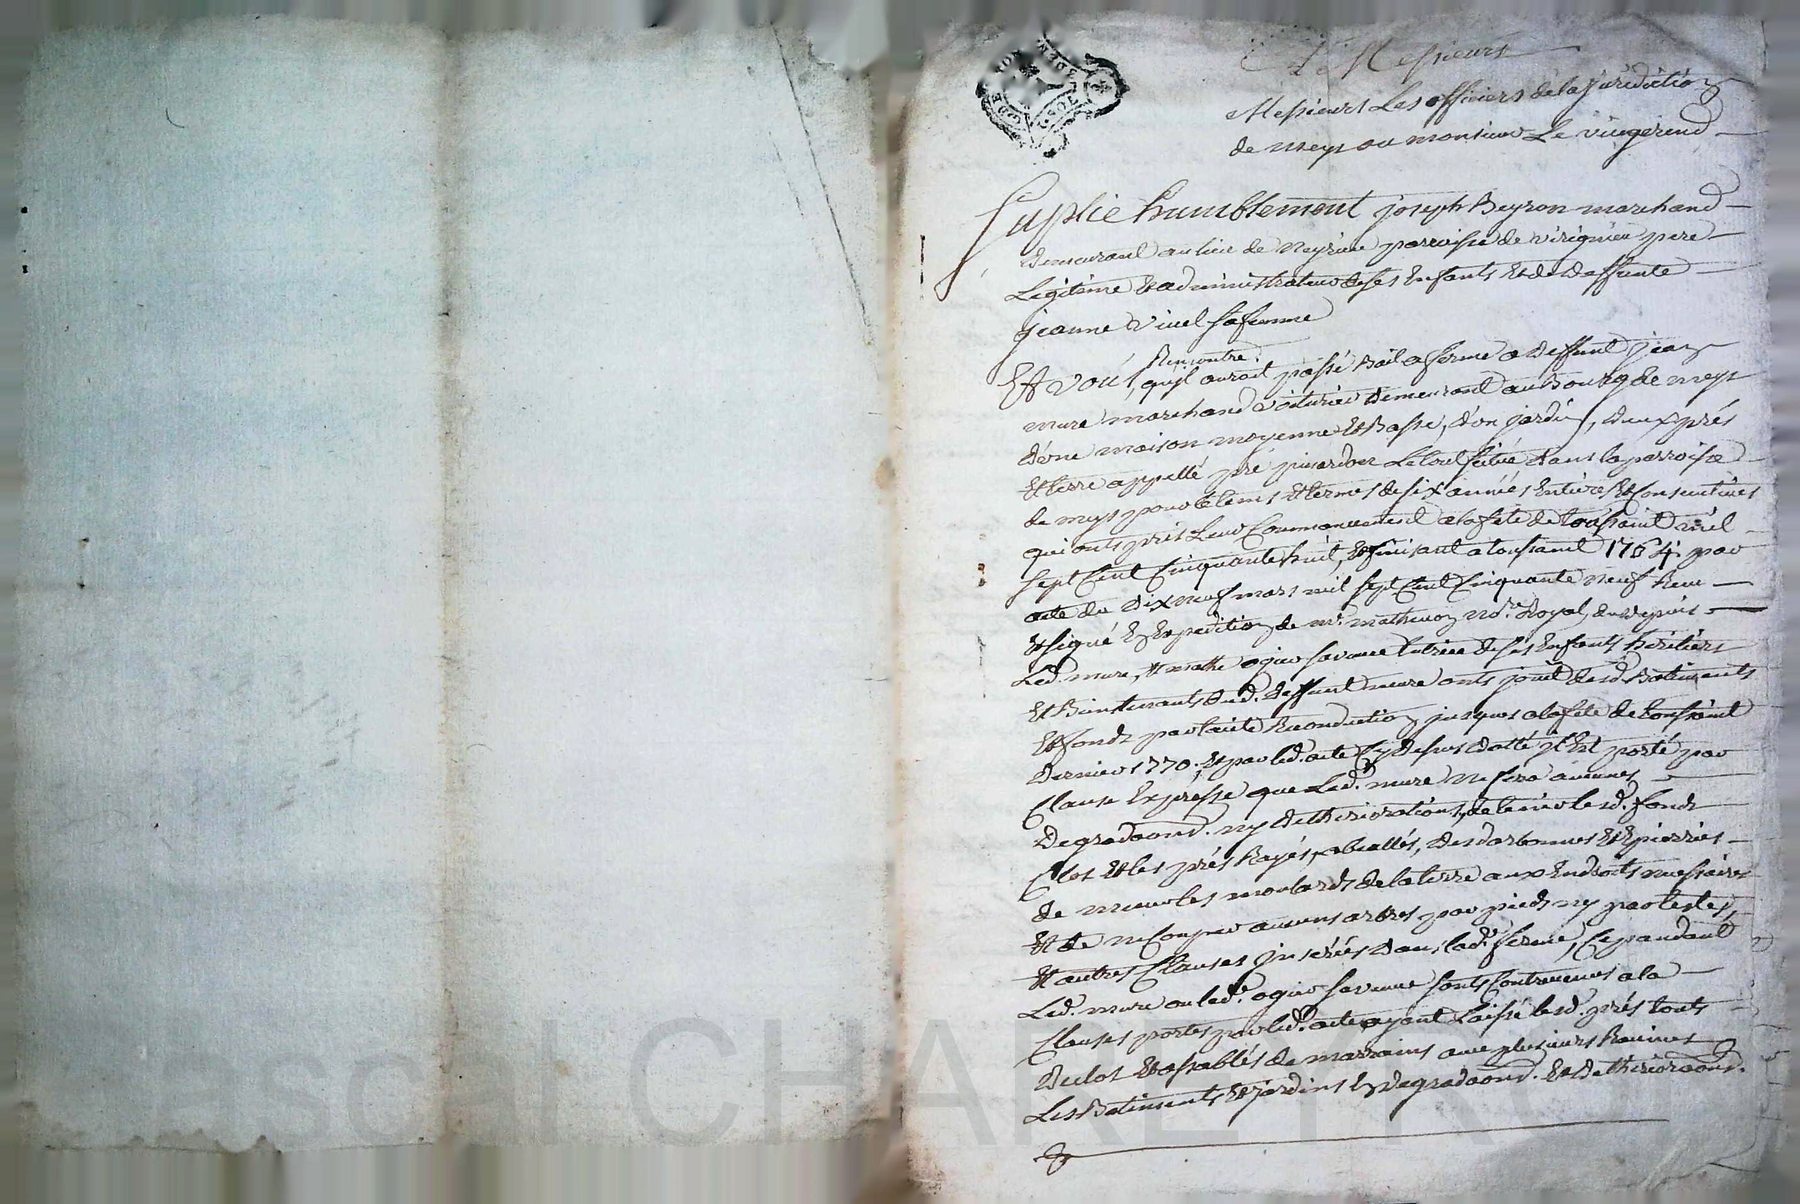 A Messieurs
Messieurs Les officiers de la Juridiction
de meys ou monsieur Le vicegerend
Suplie humblement joseph Beyron marchand
Demeurant au lieu de paroisse de virignieu pere
Legitime et administrateur de ses Enfants et de Deffunte
jeanne sa femme
Remontre
Et vou, quil auroit passé Bail a ferme a Deffunt jean
mure marchand voiturier Demeurant au Bourg de meys
D'une maison moyenne et Basse, d'un jardin, deux prés
et terre appellé pré Le tout situé dans la parroisse
de meys pour le tems et termes de six années Entieres et Consecutives
qui onts pris Leur Commancement a la féte de toussaint mil
sept Cent Cinquante huit, et finisant a toussaint 1764 par
acte du Dix neuf mars mil sept Cent Cinquante neuf Receu
et signé En Expedition de me. mathevon nore. Royal, du depuis
Led. mure, et ogier sa veuve tutrice de ses Enfants heritiers
et Bientenants dud. Deffunt mure onts jouit desd. Batiments
et fonds par tacite Reconduction jusques a la féte de toussaint
Dernier 1770, et par led. acte Cy Dessus datté yl Est porté par
Clause Expresse que Led. mure ne fera aucunes
Degradaons. ny Detheriorations, de tenir lesd. fonds
Clos et les prés Rayés, des darbonnes et pierries
de les de la terre aux Endroits necessaires
et de ne Couper aucuns arbres par pieds ny par testes,
et autres Clauses jnserées dans lad. ferme, Cependant
Led. mure ou lad. ogier sa veuve sonts Contrevenus a la
Clauses portes par led. acte ayant Laissé lesd. prés touts
Declos et assablés de marrains avec plusieurs Ravines
Les Batiments et jardins En Degradaons. et Detherioraons.
CHAREYRON